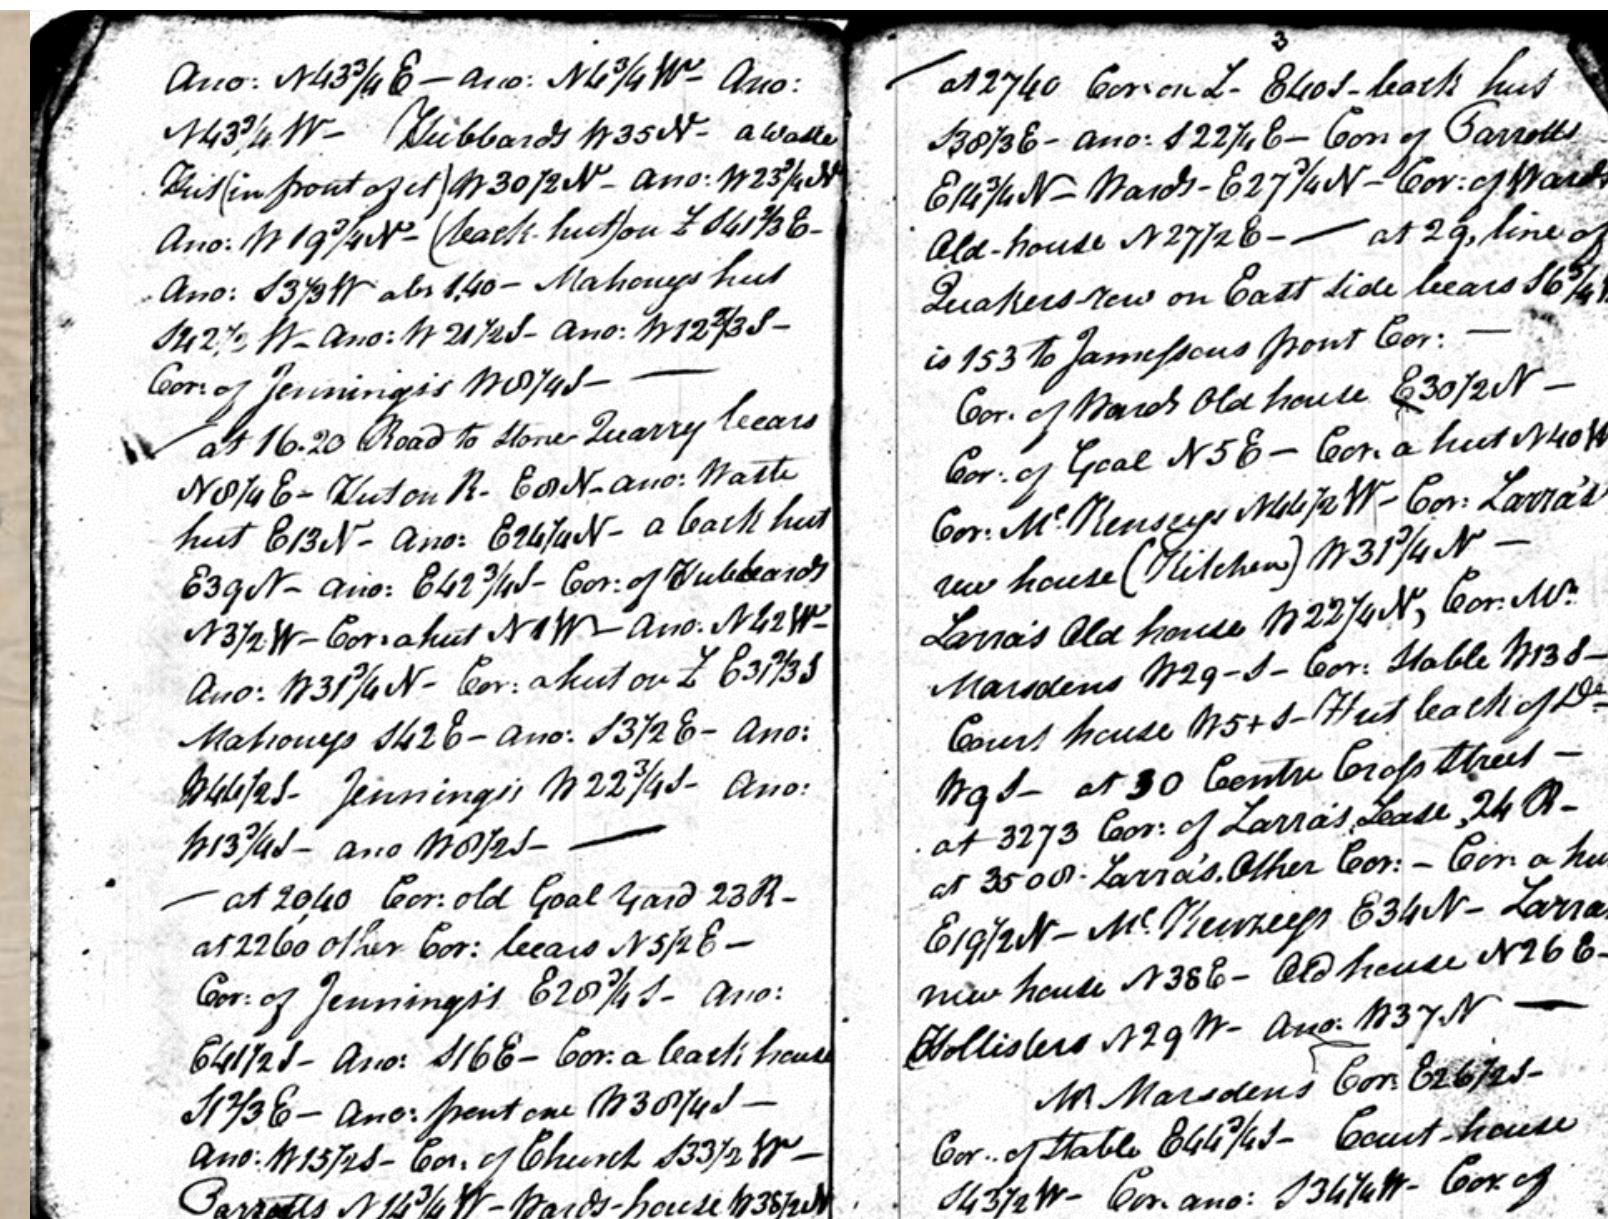 Ano: N43¾E - ano: N4¾W - Ano:
N43¾W - Hubbards W35N - a waste
Hut (in front of it) W30½N - Ano: W23¾N
Ano: W19¾N - (back hut) on L S41⅔E -
Ano: S3⅓W abt 1.40 - Mahoneys hut
S42½W - Ano: W21½S - Ano: W12⅔S -
Cor: of Jenningis W8¼S - —
at 16.20 Road to Stone Quarry bears
N8¼E - Hut on R - E8N - ano: Waste
hut E13N - Ano: E24¼N - a back hut
E39N - ano: E42¾S - Cor: of Hubbards
N3½W - Cor: a hut N1W - Ano: N42W -
Ano: W31¾N - Cor: a hut on L E31⅔S
Mahoneys S42E - ano: S3½E - Ano:
W44½S - Jenningis W22¾S - Ano:
W13¾S - ano W8½S - —
— at 2040 Cor: old Goal Yard 23R -
at 2260 other Cor: bears N5½E -
Cor: of Jenningis E28¾S - Ano:
E41½S - Ano: S16E - Cor: a back house
S1⅔E - Ano: front one W38¼S -
Ano: W15½S - Cor: of Church S33½W -
Parrotts N14¾W - Wards-house W38½N
3
at 2740 Cor: on L - E40S - back hut
S38⅓E - ano: S22¼E - Cor: of Parrotts
E14¾N - Wards - E27¾N - Cor: of Wards
Old-house N27½E - — at 29, line of
Quakers-row on East side bears S6¾W
is 153 to Jamessons front Cor: —
Cor: of Wards Old house E30½N -
Cor: of Goal N5E - Cor: a hut N40W
Cor: Mc. Kenseys N44½W - Cor: Larra's
new house (Kitchen) W31¾N -
Larra's Old house W22¼N, Cor: Mr.
Marsdens W29-S - Cor: Stable W13S -
Court house W5+S - Hut back of Do.
W9S - at 30 Centre Cross Street -
at 3273 Cor: of Larra's Lease, 24R -
at 3508 - Larra's Other Cor: - Cor: a hu
E19½N - Mc. Kenzeys E34N - Larra
new house N38E - Old house N26E -
Hollisters N29W - Ano: W37N —
Mr Marsdens Cor: E26½S -
Cor: of Stable E44¾S - Court-house
S43½W - Cor: ano: S34¼W - Cor: of